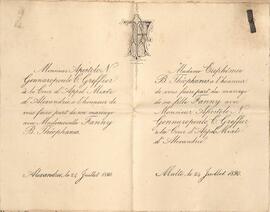 Monsieur Apostolo N.
Gennaropoulo C. Greffier
à la Cour d'Appel Mixte
d'Alexandrie a l'honneur de
vous faire part de son mariage
avec Mademoiselle Fanny
B. Théophano.
Alexandrie, le 24 Juillet 1890.
Madame Euphémie
B. Théophano a l'honneur
de vous faire part du mariage
de sa fille Fanny avec
Monsieur Apostolo N.
Gennaropoulo C. Greffier
à la Cour d'Appel Mixte
d'Alexandrie.
Malte, le 24 Juillet 1890.